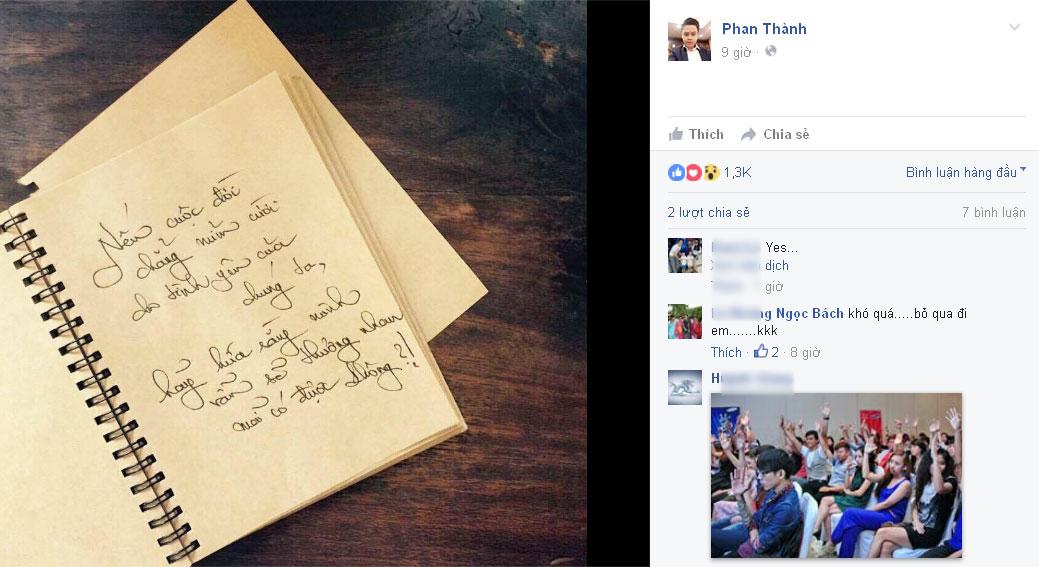 Nếu cuộc đời
chẳng mỉm cười
cho tình yêu của
chúng ta,
hãy hứa rằng mình
vẫn sẽ thương nhau
mãi có được không?!
Phan Thành
9 giờ
Thích
Chia sẻ
1,3K
Bình luận hàng đầu
2 lượt chia sẻ
7 bình luận
Yes...
dịch
giờ
Ngọc Bách khó quá.....bỏ qua đi
em.......kkk
Thích · 2 · 8 giờ